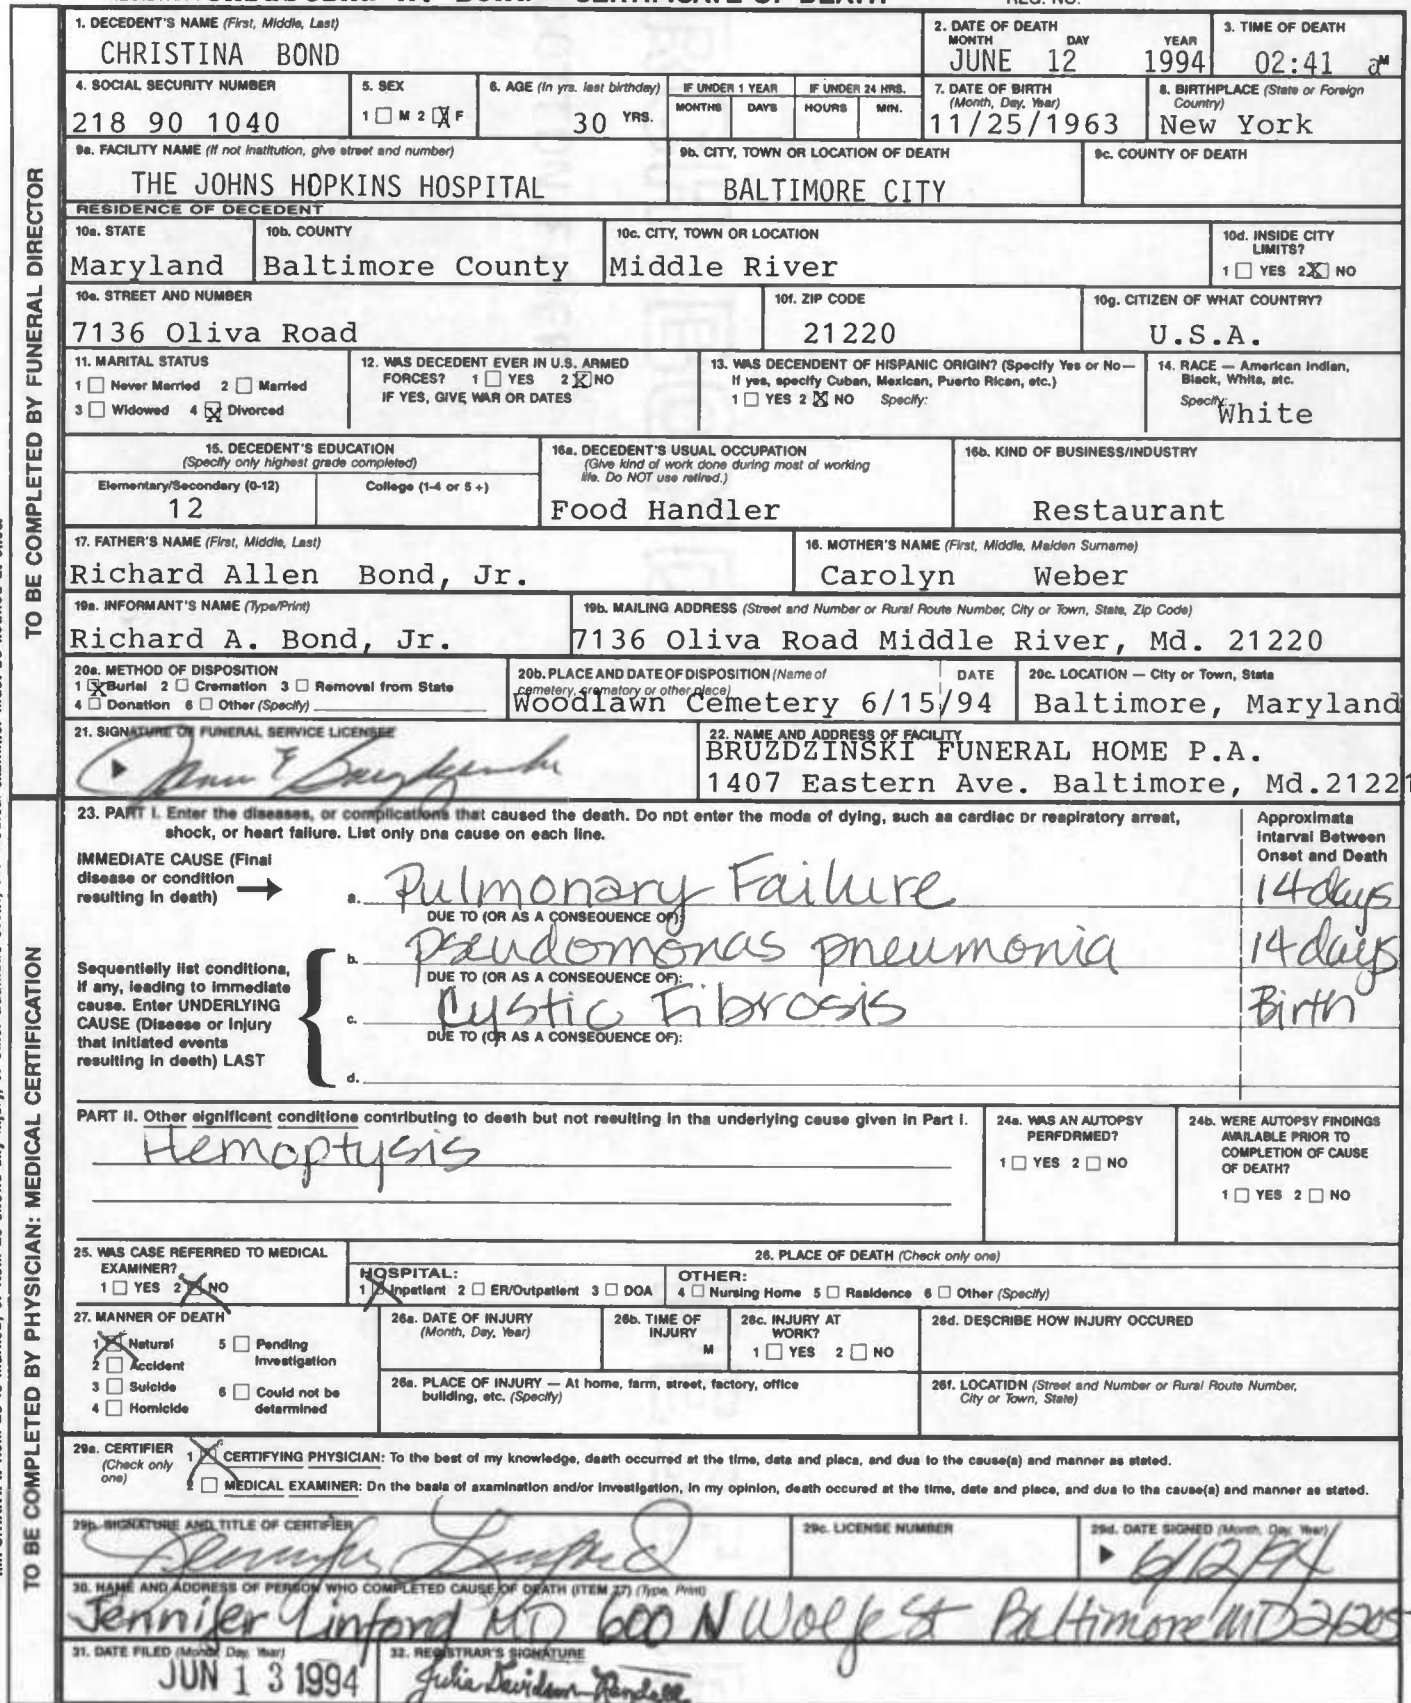 CERTIFICATE OF DEATH
REG. NO.
1. DECEDENT'S NAME (First, Middle, Last)
CHRISTINA BOND
2. DATE OF DEATH
MONTH DAY YEAR
JUNE 12 1994
3. TIME OF DEATH
02:41 aM
4. SOCIAL SECURITY NUMBER
218 90 1040
5. SEX
1 M 2 X F
6. AGE (In yrs. last birthday)
30 YRS.
IF UNDER 1 YEAR
MONTHS DAYS
IF UNDER 24 HRS.
HOURS MIN.
7. DATE OF BIRTH
(Month, Day, Year)
11/25/1963
8. BIRTHPLACE (State or Foreign
Country)
New York
9a. FACILITY NAME (If not institution, give street and number)
THE JOHNS HOPKINS HOSPITAL
9b. CITY, TOWN OR LOCATION OF DEATH
BALTIMORE CITY
9c. COUNTY OF DEATH
RESIDENCE OF DECEDENT
10a. STATE
Maryland
10b. COUNTY
Baltimore County
10c. CITY, TOWN OR LOCATION
Middle River
10d. INSIDE CITY
LIMITS?
1 YES 2 X NO
10e. STREET AND NUMBER
7136 Oliva Road
10f. ZIP CODE
21220
10g. CITIZEN OF WHAT COUNTRY?
U.S.A.
11. MARITAL STATUS
1 Never Married 2 Married
3 Widowed 4 X Divorced
12. WAS DECEDENT EVER IN U.S. ARMED
FORCES? 1 YES 2 X NO
IF YES, GIVE WAR OR DATES
13. WAS DECENDENT OF HISPANIC ORIGIN? (Specify Yes or No—
If yes, specify Cuban, Mexican, Puerto Rican, etc.)
1 YES 2 X NO Specify:
14. RACE — American Indian,
Black, White, etc.
Specify:
White
15. DECEDENT'S EDUCATION
(Specify only highest grade completed)
Elementary/Secondary (0-12) College (1-4 or 5+)
12
16a. DECEDENT'S USUAL OCCUPATION
(Give kind of work done during most of working
life. Do NOT use retired.)
Food Handler
16b. KIND OF BUSINESS/INDUSTRY
Restaurant
17. FATHER'S NAME (First, Middle, Last)
Richard Allen Bond, Jr.
16. MOTHER'S NAME (First, Middle, Maiden Surname)
Carolyn Weber
19a. INFORMANT'S NAME (Type/Print)
Richard A. Bond, Jr.
19b. MAILING ADDRESS (Street and Number or Rural Route Number, City or Town, State, Zip Code)
7136 Oliva Road Middle River, Md. 21220
20a. METHOD OF DISPOSITION
1 X Burial 2 Cremation 3 Removal from State
4 Donation 6 Other (Specify)
20b. PLACE AND DATE OF DISPOSITION (Name of
cemetery, crematory or other place)
DATE
Woodlawn Cemetery 6/15/94
20c. LOCATION — City or Town, State
Baltimore, Maryland
21. SIGNATURE OF FUNERAL SERVICE LICENSEE
22. NAME AND ADDRESS OF FACILITY
BRUZDZINSKI FUNERAL HOME P.A.
1407 Eastern Ave. Baltimore, Md.21221
TO BE COMPLETED BY FUNERAL DIRECTOR
23. PART I. Enter the diseases, or complications that caused the death. Do not enter the mode of dying, such as cardiac or respiratory arrest,
shock, or heart failure. List only one cause on each line.
Approximate
Interval Between
Onset and Death
IMMEDIATE CAUSE (Final
disease or condition
resulting in death)
a. Pulmonary Failure 14 days
DUE TO (OR AS A CONSEQUENCE OF):
b. pseudomonas pneumonia 14 days
DUE TO (OR AS A CONSEQUENCE OF):
c. Cystic Fibrosis Birth
DUE TO (OR AS A CONSEQUENCE OF):
d.
Sequentially list conditions,
if any, leading to immediate
cause. Enter UNDERLYING
CAUSE (Disease or Injury
that initiated events
resulting in death) LAST
PART II. Other significant conditions contributing to death but not resulting in the underlying cause given in Part I.
Hemoptysis
24a. WAS AN AUTOPSY
PERFORMED?
1 YES 2 NO
24b. WERE AUTOPSY FINDINGS
AVAILABLE PRIOR TO
COMPLETION OF CAUSE
OF DEATH?
1 YES 2 NO
25. WAS CASE REFERRED TO MEDICAL
EXAMINER?
1 YES 2 X NO
26. PLACE OF DEATH (Check only one)
HOSPITAL:
1 X Inpatient 2 ER/Outpatient 3 DOA
OTHER:
4 Nursing Home 5 Residence 6 Other (Specify)
27. MANNER OF DEATH
1 X Natural 5 Pending
2 Accident Investigation
3 Suicide 6 Could not be
4 Homicide determined
26a. DATE OF INJURY
(Month, Day, Year)
26b. TIME OF
INJURY
M
28c. INJURY AT
WORK?
1 YES 2 NO
28d. DESCRIBE HOW INJURY OCCURED
26a. PLACE OF INJURY — At home, farm, street, factory, office
building, etc. (Specify)
26f. LOCATION (Street and Number or Rural Route Number,
City or Town, State)
29a. CERTIFIER
(Check only
one)
1 X CERTIFYING PHYSICIAN: To the best of my knowledge, death occurred at the time, date and place, and due to the cause(s) and manner as stated.
2 MEDICAL EXAMINER: On the basis of examination and/or investigation, in my opinion, death occured at the time, date and place, and due to the cause(s) and manner as stated.
29b. SIGNATURE AND TITLE OF CERTIFIER
Jennifer Linford
29c. LICENSE NUMBER
29d. DATE SIGNED (Month, Day, Year)
6/12/94
30. NAME AND ADDRESS OF PERSON WHO COMPLETED CAUSE OF DEATH (ITEM 27) (Type, Print)
Jennifer Linford MD 600 N Wolfe St Baltimore MD 21205
31. DATE FILED (Month, Day, Year)
JUN 13 1994
32. REGISTRAR'S SIGNATURE
Julia Davidson-Randall
TO BE COMPLETED BY PHYSICIAN: MEDICAL CERTIFICATION